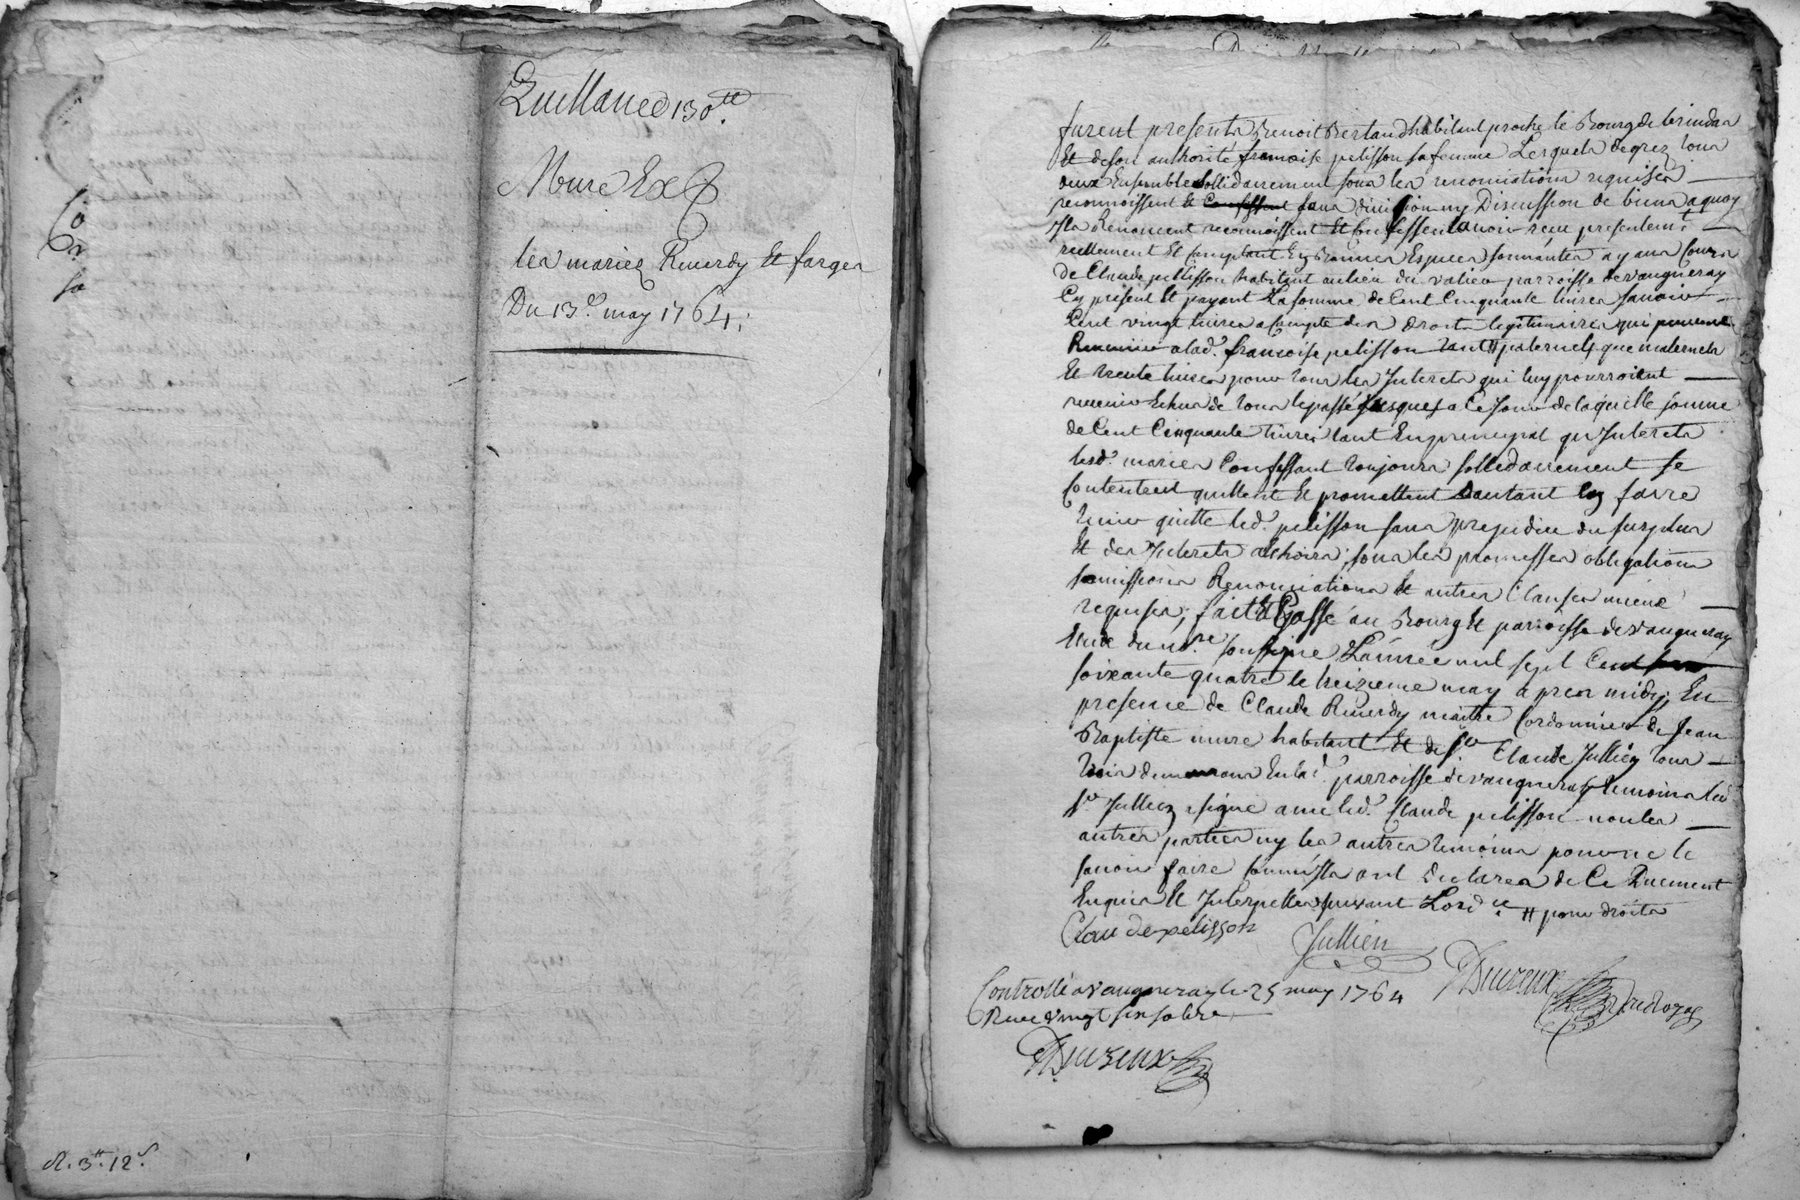 Quittance 130tt.
Mure Ex
les mariez Rmerdy et farges
Du 13e. may 1764.
R. 3tt. 12s.
furent presents Benoit Bertaud habitant proche le Bourg de brindas
Et de son authorité francoise pelisson sa femme Lesquels degrez tous
deux Ensemble sollidairement sous les renonciations requises
reconnoissent et confessent sans division ny Discussion de biens a quoy
Ils Renoncent reconnoissent Et Confessent avoir recu presentemt
reellement Et Comptant En Bonnes Especes sonnantes ayans Cours
De Claude pelisson habitant au lieu du valieu parroisse de vaugneray
Cy present Et payant La somme de Cent Cinquante livres savoir
Cent vingt livres a Compte des droits legitimaires qui peuvent
Revenir a lad. francoise pelisson tant # paternels que maternels
Et trente livres pour tous les Interets qui luy pourroient
revenir Echus de tous le passé Jusques a Ce Jour de laquelle somme
de Cent Cinquante livres tant En principal qu'Interets
lesd. mariés Confessant toujours sollidairement se
Contentent quittent Et promettent d'autant En faire
tenir quitte led. pelisson sans prejudice du surplus
Et des Interets a Echoirs, sous les promesses obligations
soumissions Renonciations Et autres Clauses mieux
requises, fait Et Passé au Bourg Et parroisse de vaugneray
Etude du nore. soussigné L'année mil sept Cent
soixante quatre le treizieme may apres midy, En
presence de Claude Rmerdy maitre Cordonnier De Jean
Baptiste mure habitant Et de Sr Claude Jullien tous
trois demeurans En lad. parroisse de vaugneray temoins led.
Sr Jullien a signé avec led. Claude pelisson non les
autres parties ny les autres temoins pour ne le
savoir faire comm'Ils ont declarés de Ce Duement
Enquis Et Interpellés suivant L'ordce. # pour droits
Clau de pelisson
Jullien
Controllé a Vaugneray le 25 may 1764
Recu vingt six sols